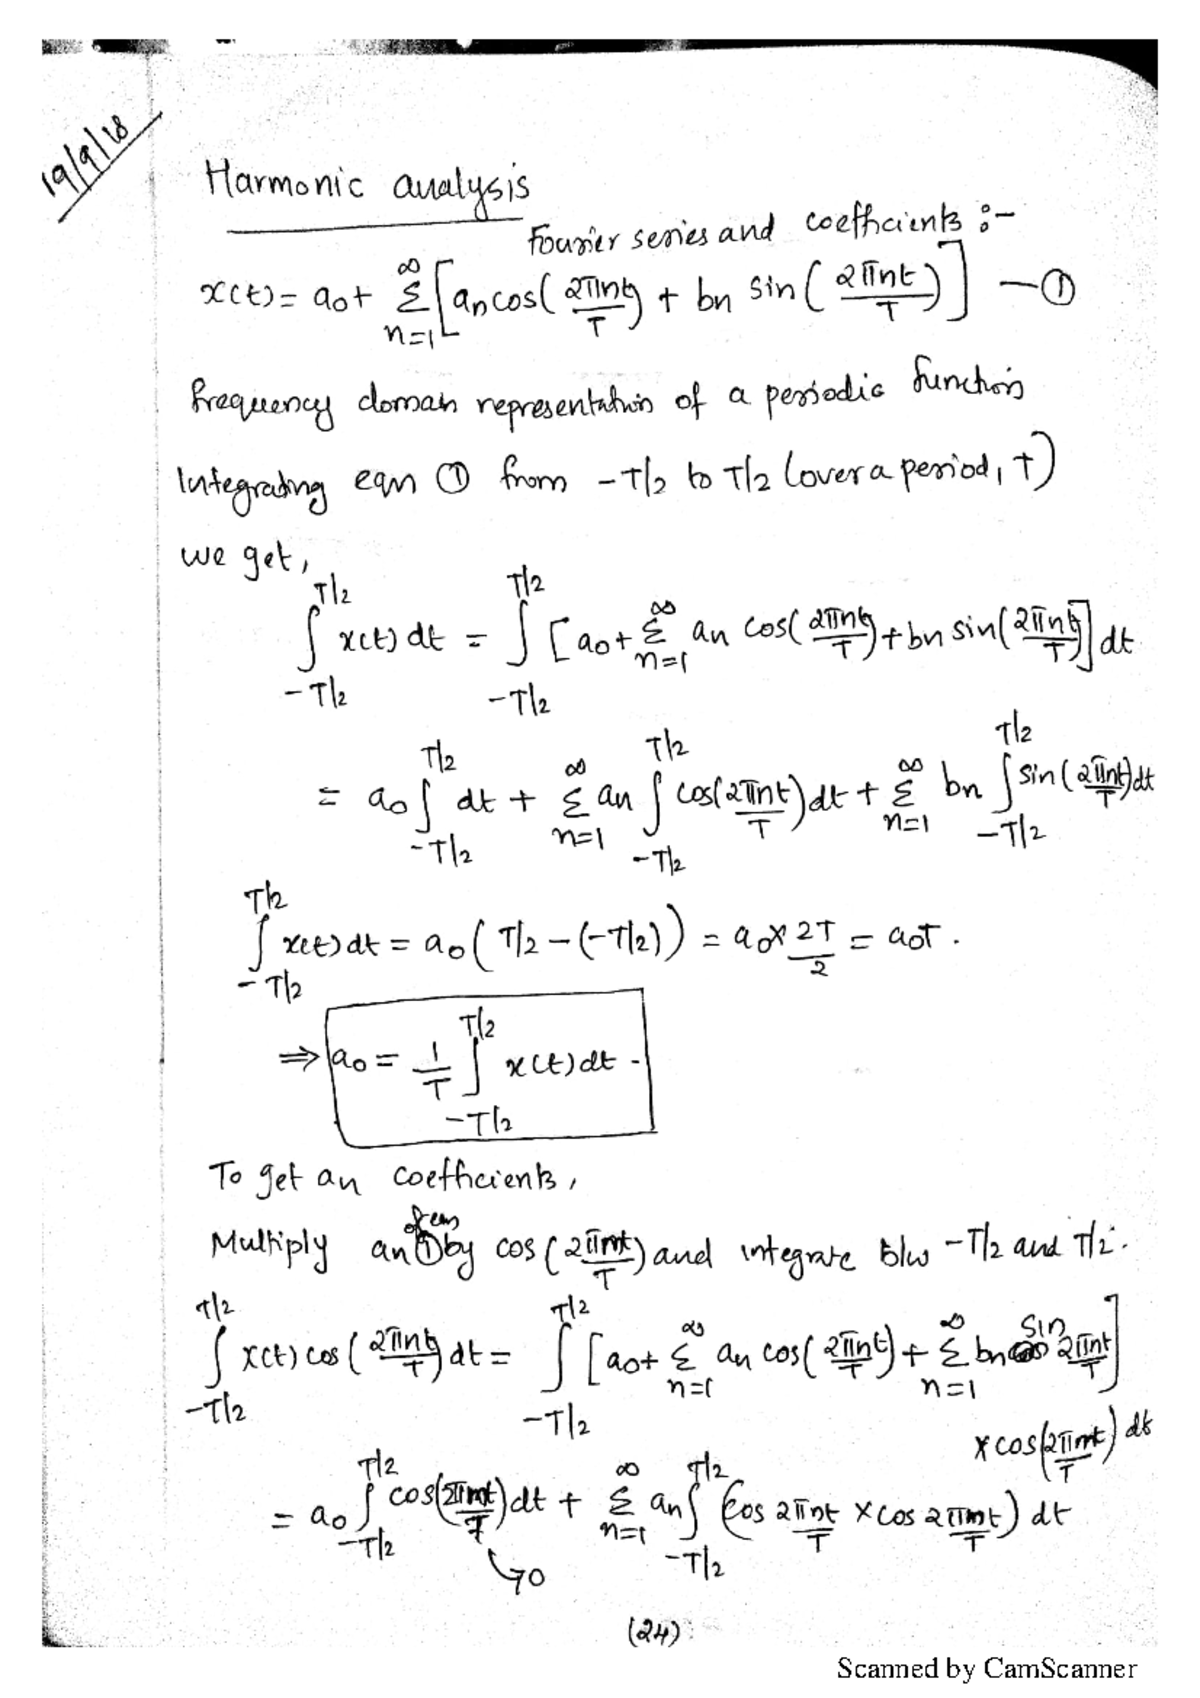 19/9/18
Harmonic analysis
Fourier series and coefficients :-
x(t) = a0 + ∞ Σ n=1 [an cos(2πnt/T) + bn sin(2πnt/T)] — ①
frequency domain representation of a periodic function
Integrating eqn ① from -T/2 to T/2 (over a period, T)
we get,
∫_{-T/2}^{T/2} x(t) dt = ∫_{-T/2}^{T/2} [a0 + Σ_{n=1}^{∞} an cos(2πnt/T) + bn sin(2πnt/T)] dt
= a0 ∫_{-T/2}^{T/2} dt + Σ_{n=1}^{∞} an ∫_{-T/2}^{T/2} cos(2πnt/T) dt + Σ_{n=1}^{∞} bn ∫_{-T/2}^{T/2} sin(2πnt/T) dt
∫_{-T/2}^{T/2} x(t) dt = a0 (T/2 - (-T/2)) = a0 × 2T/2 = a0T.
⇒ a0 = 1/T ∫_{-T/2}^{T/2} x(t) dt.
To get an coefficients,
Multiply an of eqn ① by cos(2πmt/T) and integrate b/w -T/2 and T/2.
∫_{-T/2}^{T/2} x(t) cos(2πnt/T) dt = ∫_{-T/2}^{T/2} [a0 + Σ_{n=1}^{∞} an cos(2πnt/T) + Σ_{n=1}^{∞} bn sin 2πnt/T]
× cos(2πmt/T) dt
= a0 ∫_{-T/2}^{T/2} cos(2πmt/T) dt + Σ_{n=1}^{∞} an ∫_{-T/2}^{T/2} (cos 2πnt/T × cos 2πmt/T) dt
→0
(24)
Scanned by CamScanner